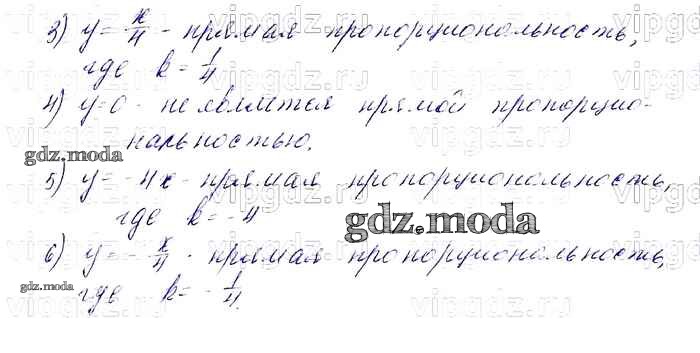 3) y = x/4 - прямая пропорциональность,
где k = 1/4
4) y=0 - не является прямой пропорцио-
нальностью.
gdz.moda
5) y = -4x - прямая пропорциональность,
где k = -4
gdz.moda
6) y = - x/4 - прямая пропорциональность,
gdz.moda
где k = - 1/4.